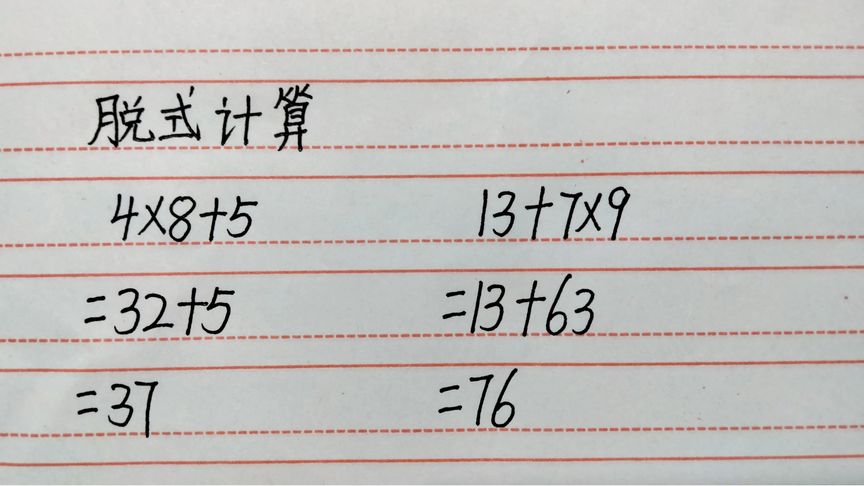 脱式计算
4×8+5 13+7×9
=32+5 =13+63
=37 =76